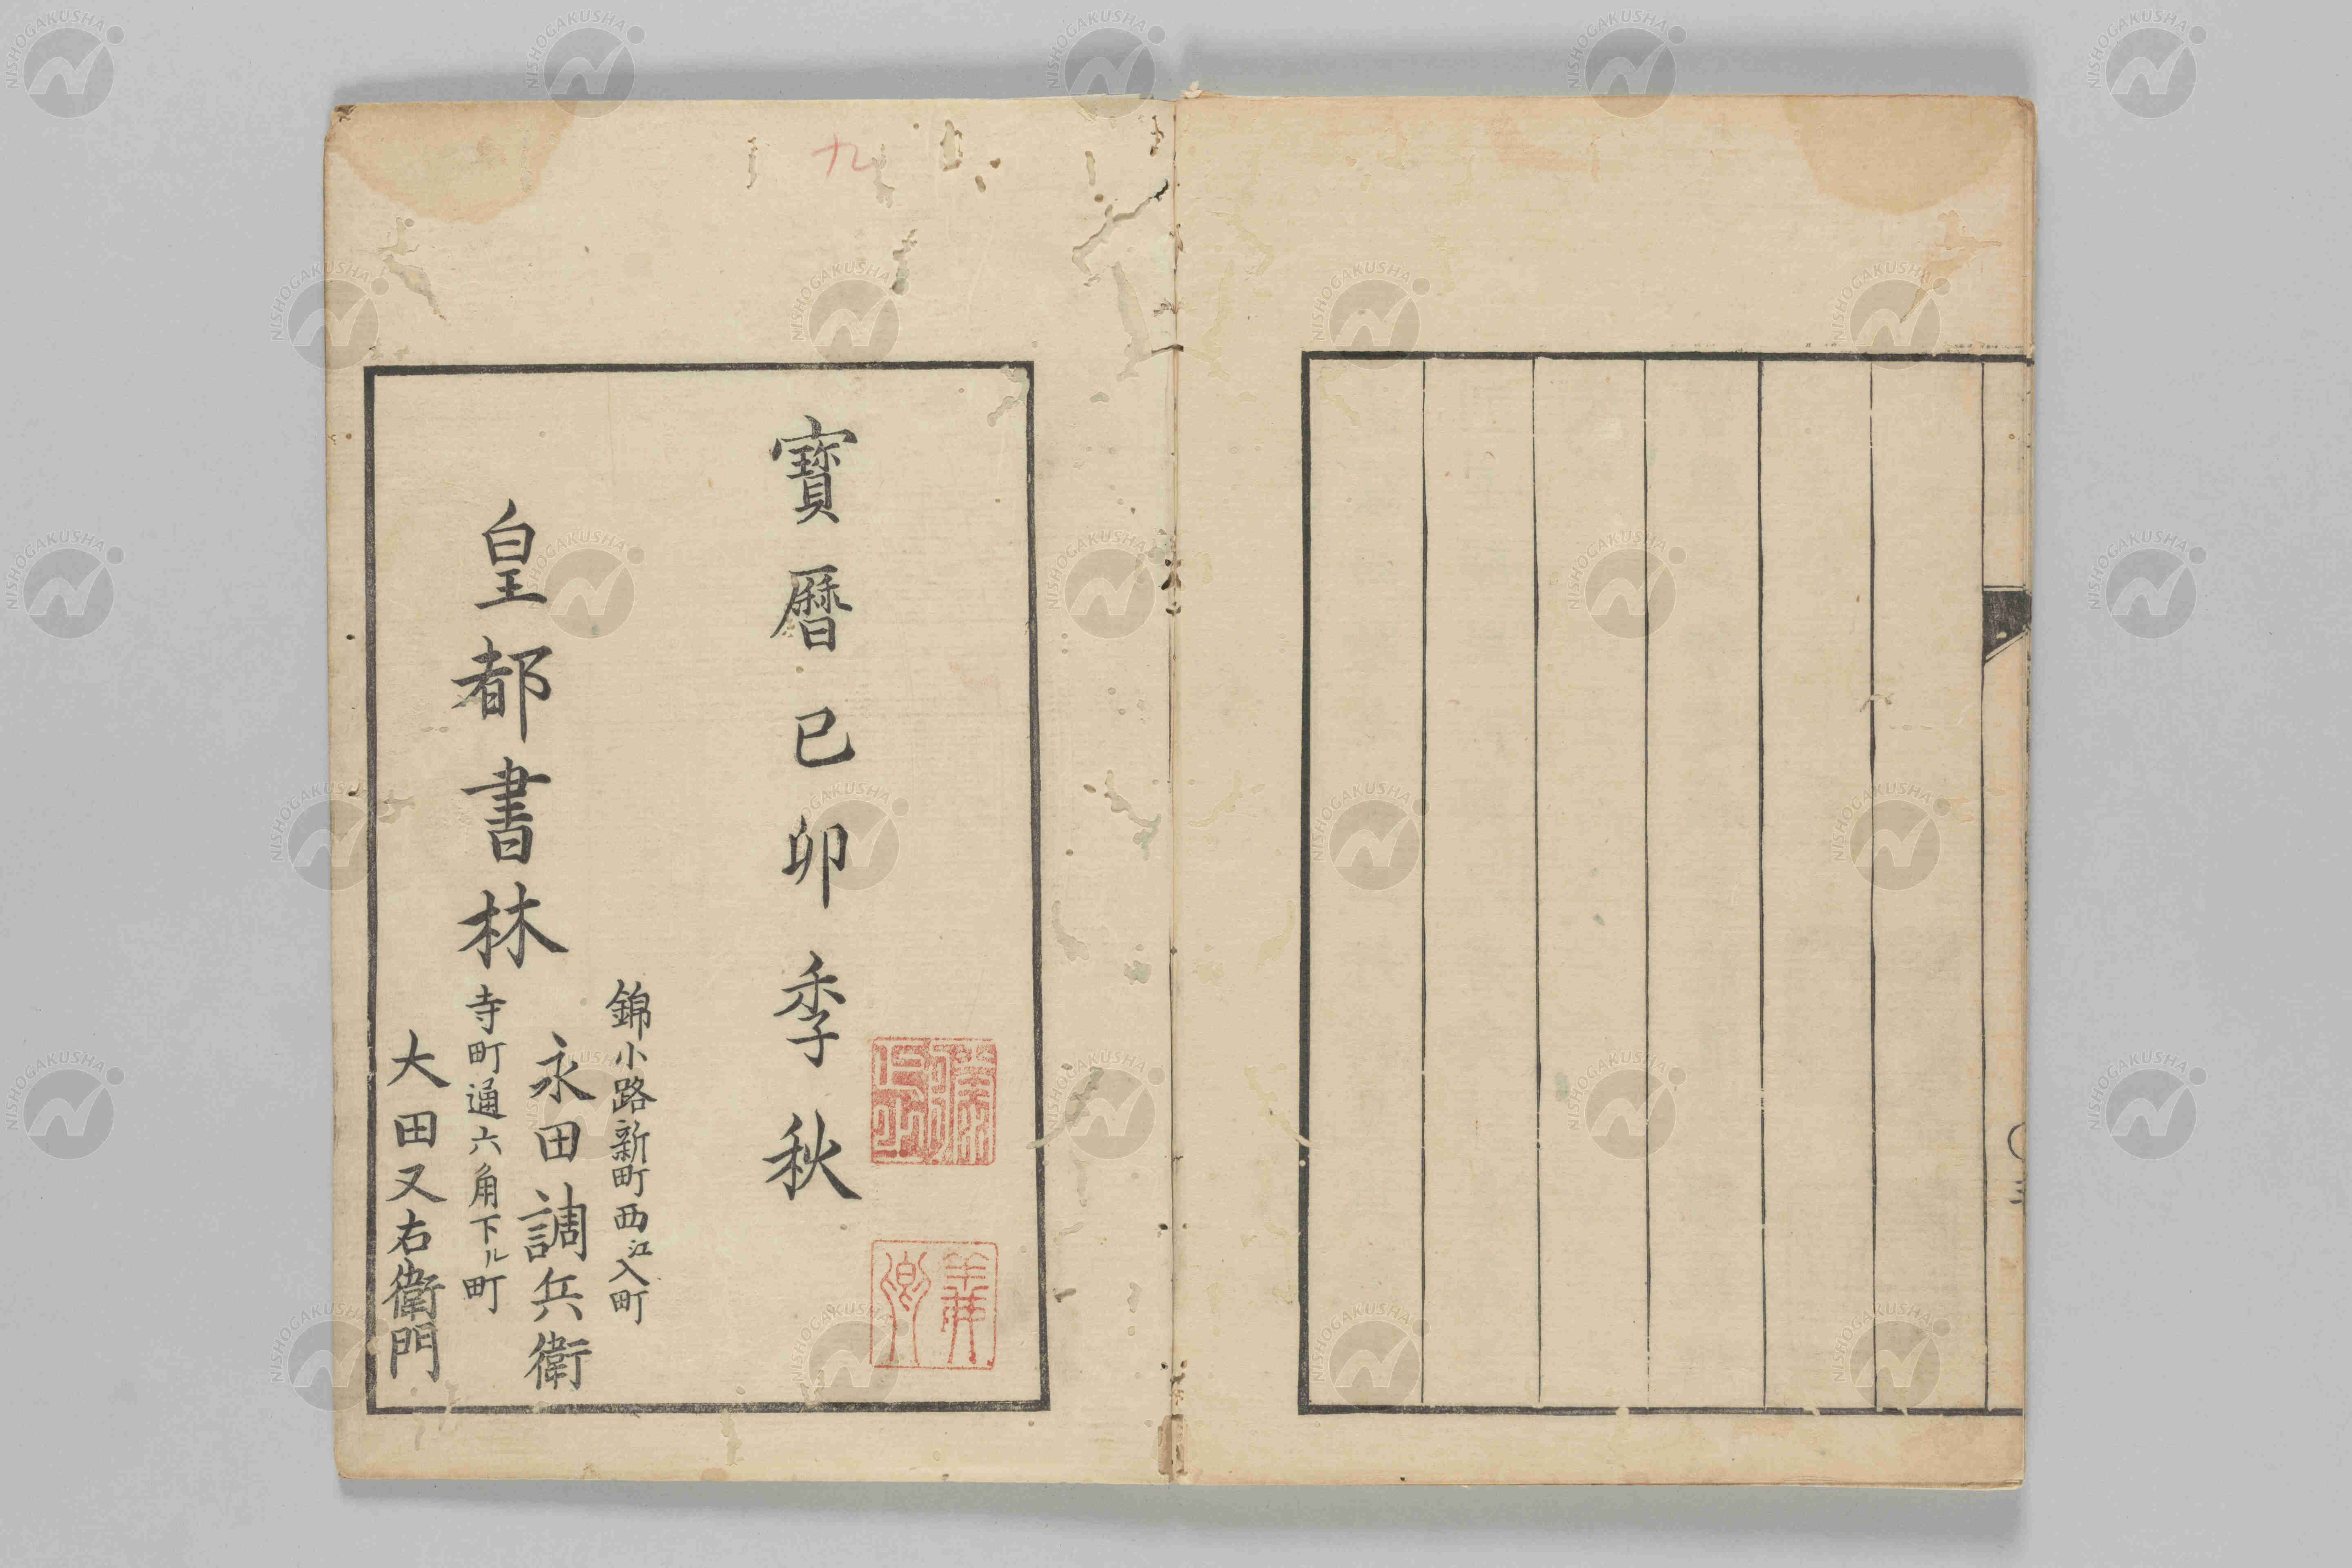 寶曆己卯季秋
皇都書林
錦小路新町西江入町
永田調兵衛
寺町通六角下ル町
大田又右衛門
九
NISHOGAKUSHA